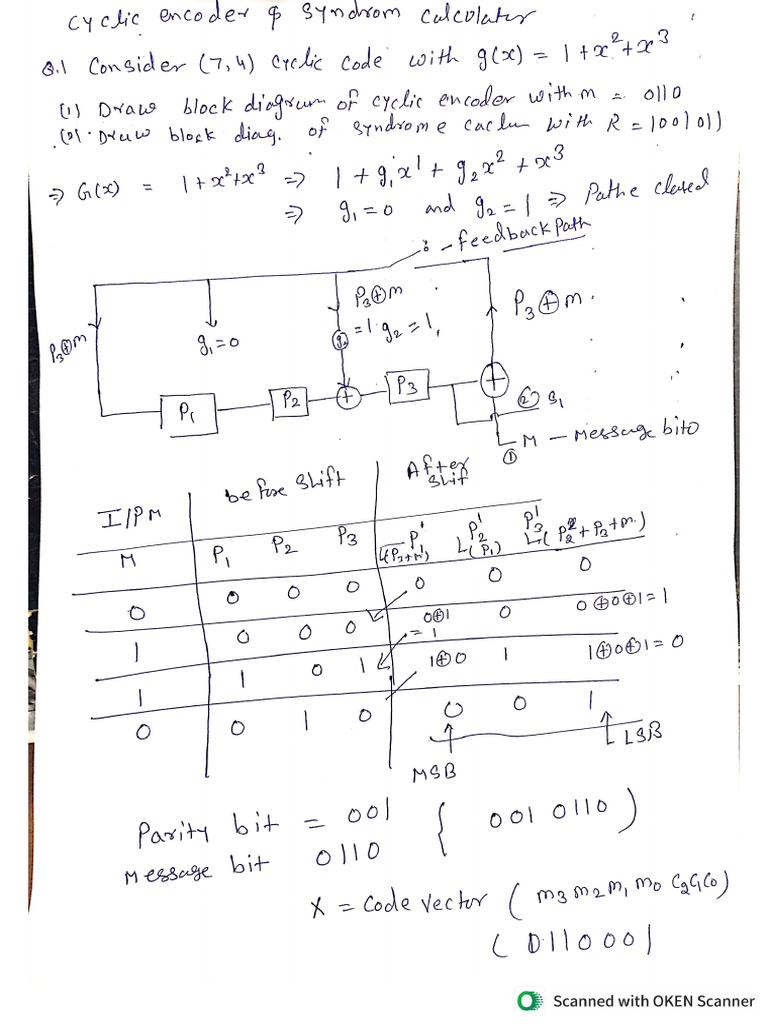 cyclic encoder & syndrom calculator
Q.1 Consider (7,4) cyclic code with g(x) = 1+x²+x³
(1) Draw block diagram of cyclic encoder with m = 0110
(2). Draw block diag. of syndrome caclu with R = 1001011
⇒ G(x) = 1+x²+x³ ⇒ 1 + g₁x¹ + g₂x² + x³
⇒ g₁=0 and g₂=1 ⇒ Pathe closed
:-feedback path
P₃⊕m
P₃⊕m
P₃⊕m.
g₁=0
g₂ =1. g₂=1,
P₁ P₂ + P₃ +
② S₁
M - Message bito
①
I/P M before shift After shit
M P₁ P₂ P₃ P₁' (P₃+M) P₂' (P₁) P₃' (P₂+P₃+m.)
0 0 0 0 0 0 0
1 0 0 0 0⊕1 =1 0 0⊕0⊕1=1
1 1 0 1 1⊕0 1 1⊕0⊕1=0
0 0 1 0 0 0 1
MSB LSB
Parity bit = 001 { 001 0110 )
Message bit 0110
X = Code vector ( m₃ m₂ m₁ m₀ C₂C₁C₀)
( 0110001
Scanned with OKEN Scanner